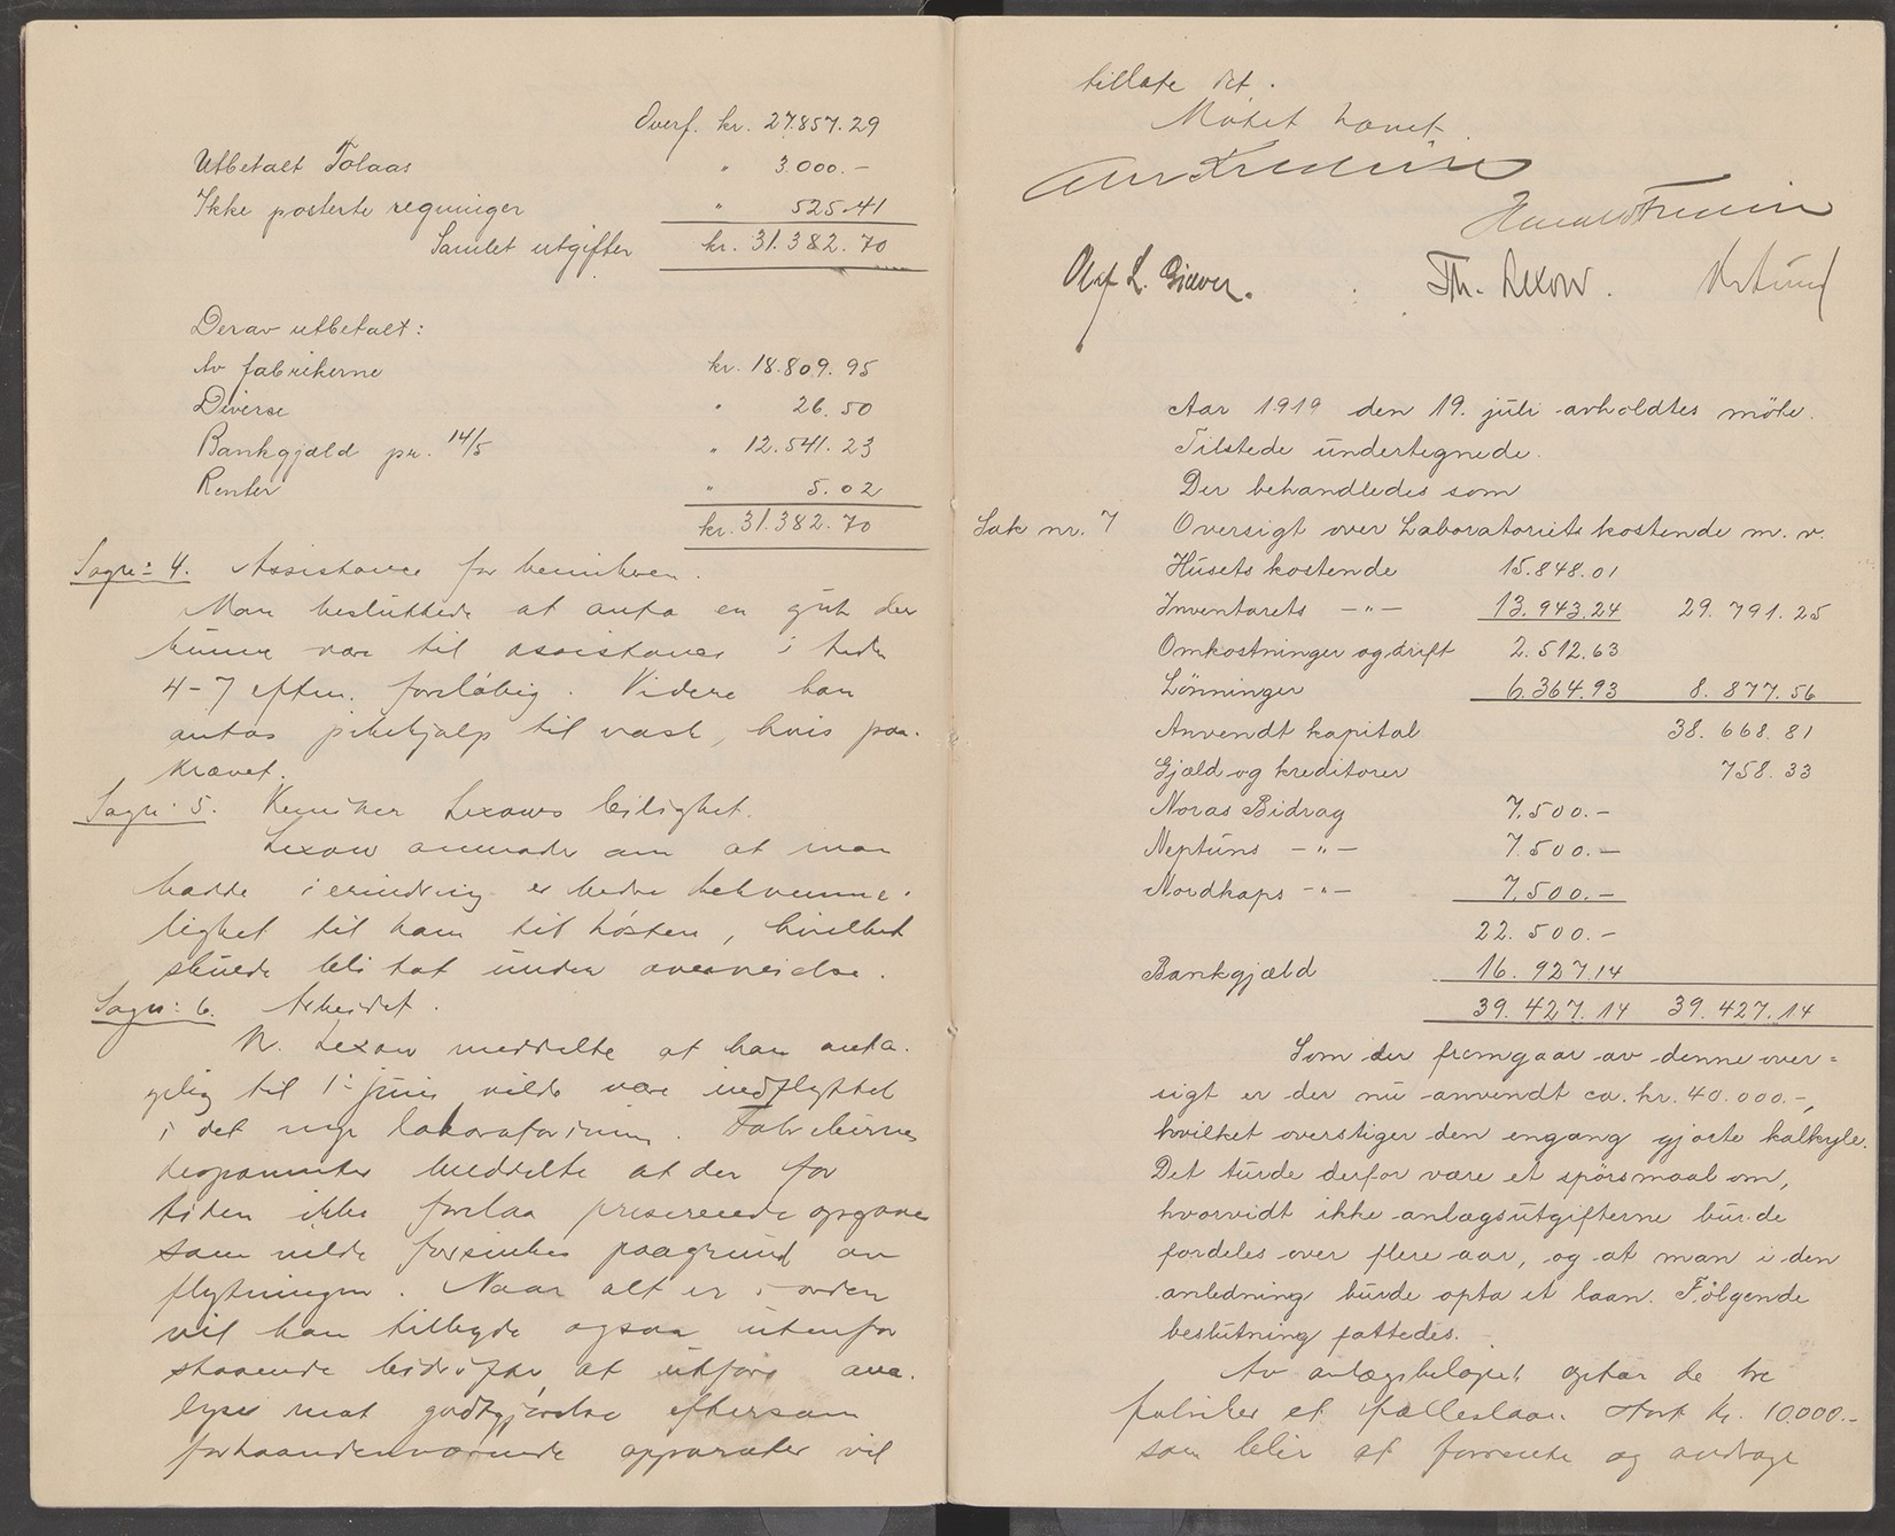 Overf. kr. 27.857.29
Utbetalt Tolaas " 3.000.-
Ikke posterte regninger " 525.41
Samlet utgifter kr. 31.382.70
Derav utbetalt:
Av fabrikerne kr. 18.809.95
Diverse " 26.50
Bankgjæld pr. 14/5 " 12.541.23
Renter " 5.02
kr. 31.382.70
Sagn: 4. Assistance for kemikeren.
Man besluttede at anta en gut der
kunne være til assistance i tiden
4-7 efterm. foreløbig. Videre kan
antas pikehjælp til vask, hvis paa-
krævet.
Sagn: 5. Kemiker Lexows leilighet.
Lexow anmodet om at man
hadde i erindring et bedre bekvemme-
lighet til ham til høsten, hvilket
skulde bli tat under overveielse.
Sagn: 6. Arbeidet.
Hr. Lexow meddelte at han anta-
gelig til 1: juni vilde være indflyttet
i det nye laboratorium. Fabrikernes
disponenter meddelte at der for
tiden ikke forelaa preserende opgaver
som vilde forsinkes paagrund av
flytningen. Naar alt er i orden
vil han tilbyde ogsaa utenfor
staaende bedrifter at utføre ana-
lyser mot godtgjørelse eftersom
forhaandenværende apparater vil
tillate det.
Møtet hævet.
Olaf L. Giæver. Th. Lexow.
Aar 1919 den 19. juli avholdtes möte.
Tilstede undertegnede.
Der behandledes som
Sak nr. 7 Oversigt over Laboratoriets kostende m. v.
Husets kostende 15.848.01
Inventarets -"- 13.943.24 29.791.25
Omkostninger og drift 2.512.63
Lönninger 6.364.93 8.877.56
Anvendt kapital 38.668.81
Gjæld og kreditorer 758.33
Noras Bidrag 7.500.-
Neptuns -"- 7.500.-
Nordkaps -"- 7.500.-
22.500.-
Bankgjæld 16.927.14
39.427.14 39.427.14
Som der fremgaar av denne over=
sigt er der nu anvendt ca. kr. 40.000.-,
hvilket overstiger den engang gjorte kalkyle.
Det turde derfor være et spörsmaal om,
hvorvidt ikke anlægsutgifterne burde
fordeles over flere aar, og at man i den
anledning burde opta et laan. Fölgende
beslutning fattedes.
Av anlægsbeløpet optar de tre
fabriker et fælleslaan stort kr. 10.000.-
som blir at forrente og avdrage